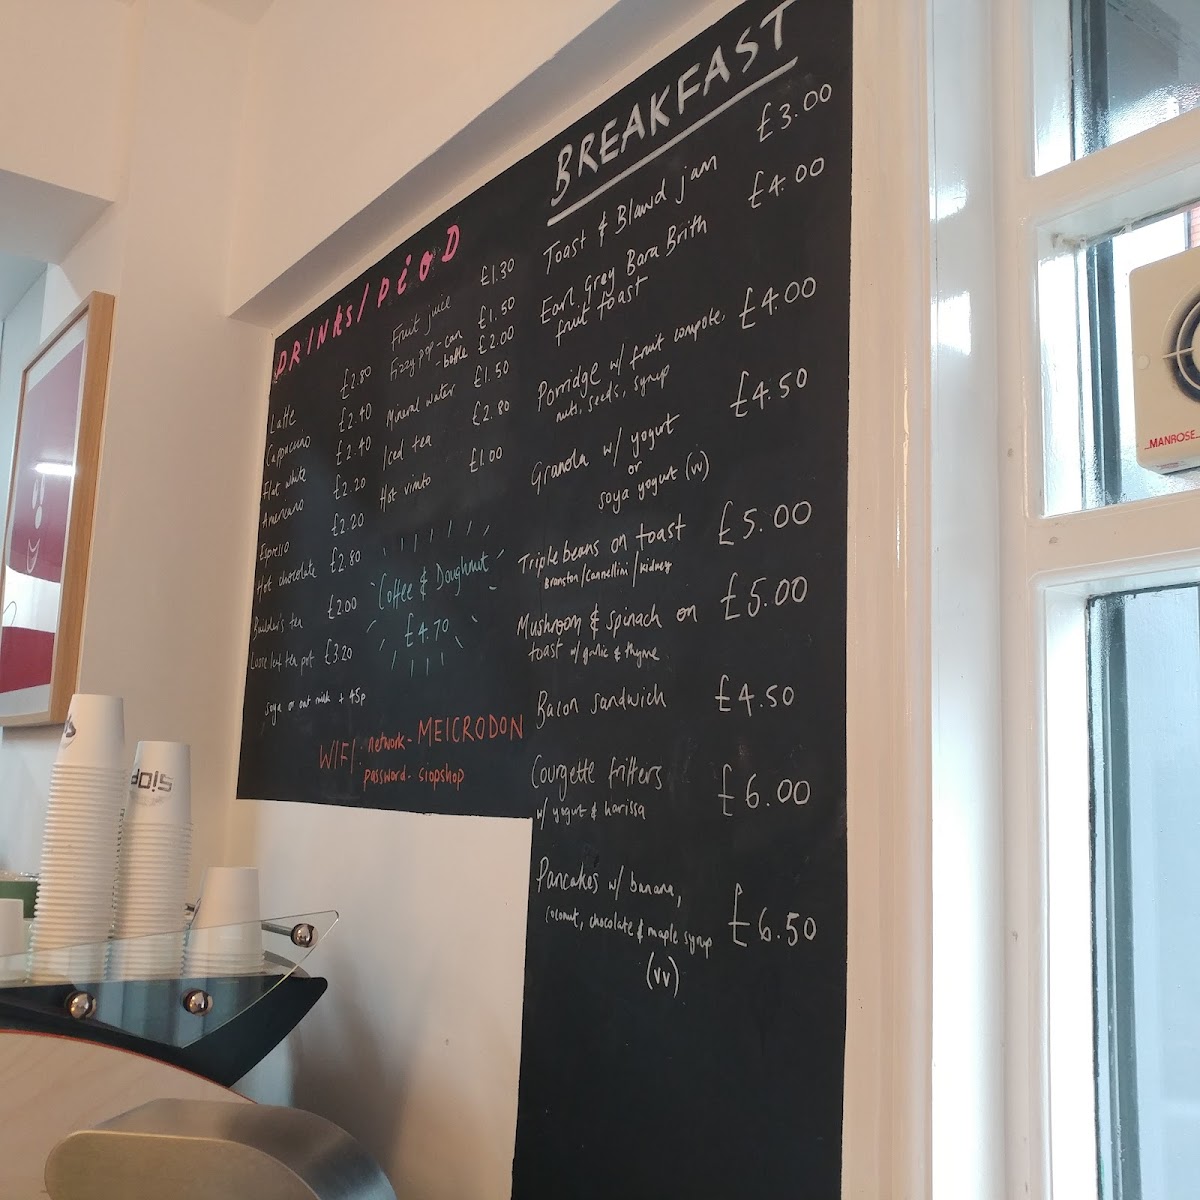 DRINKS / DIOD
Latte £2.80
Cappuccino £2.40
Flat white £2.40
Americano £2.20
Espresso £2.20
Hot chocolate £2.80
Builder's tea £2.00
Loose leaf tea pot £3.20
soya or oat milk + 45p
Fruit juice £1.30
Fizzy pop - can £1.50
- bottle £2.00
Mineral water £1.50
Iced tea £2.80
Hot vimto £1.00
Coffee & Doughnut
£4.70
WIFI: network - MEICRODON
password - siopshop
BREAKFAST
Toast & Blawd jam £3.00
Earl Grey Bara Brith £4.00
fruit toast
Porridge w/ fruit compote, £4.00
nuts, seeds, syrup
Granola w/ yogurt £4.50
or
soya yogurt (vv)
Triple beans on toast £5.00
Branston/Cannellini/kidney
Mushroom & spinach on £5.00
toast w/ garlic & thyme
Bacon sandwich £4.50
Courgette fritters £6.00
w/ yogurt & harissa
Pancakes w/ banana,
coconut, chocolate & maple syrup £6.50
(vv)
siop
MANROSE